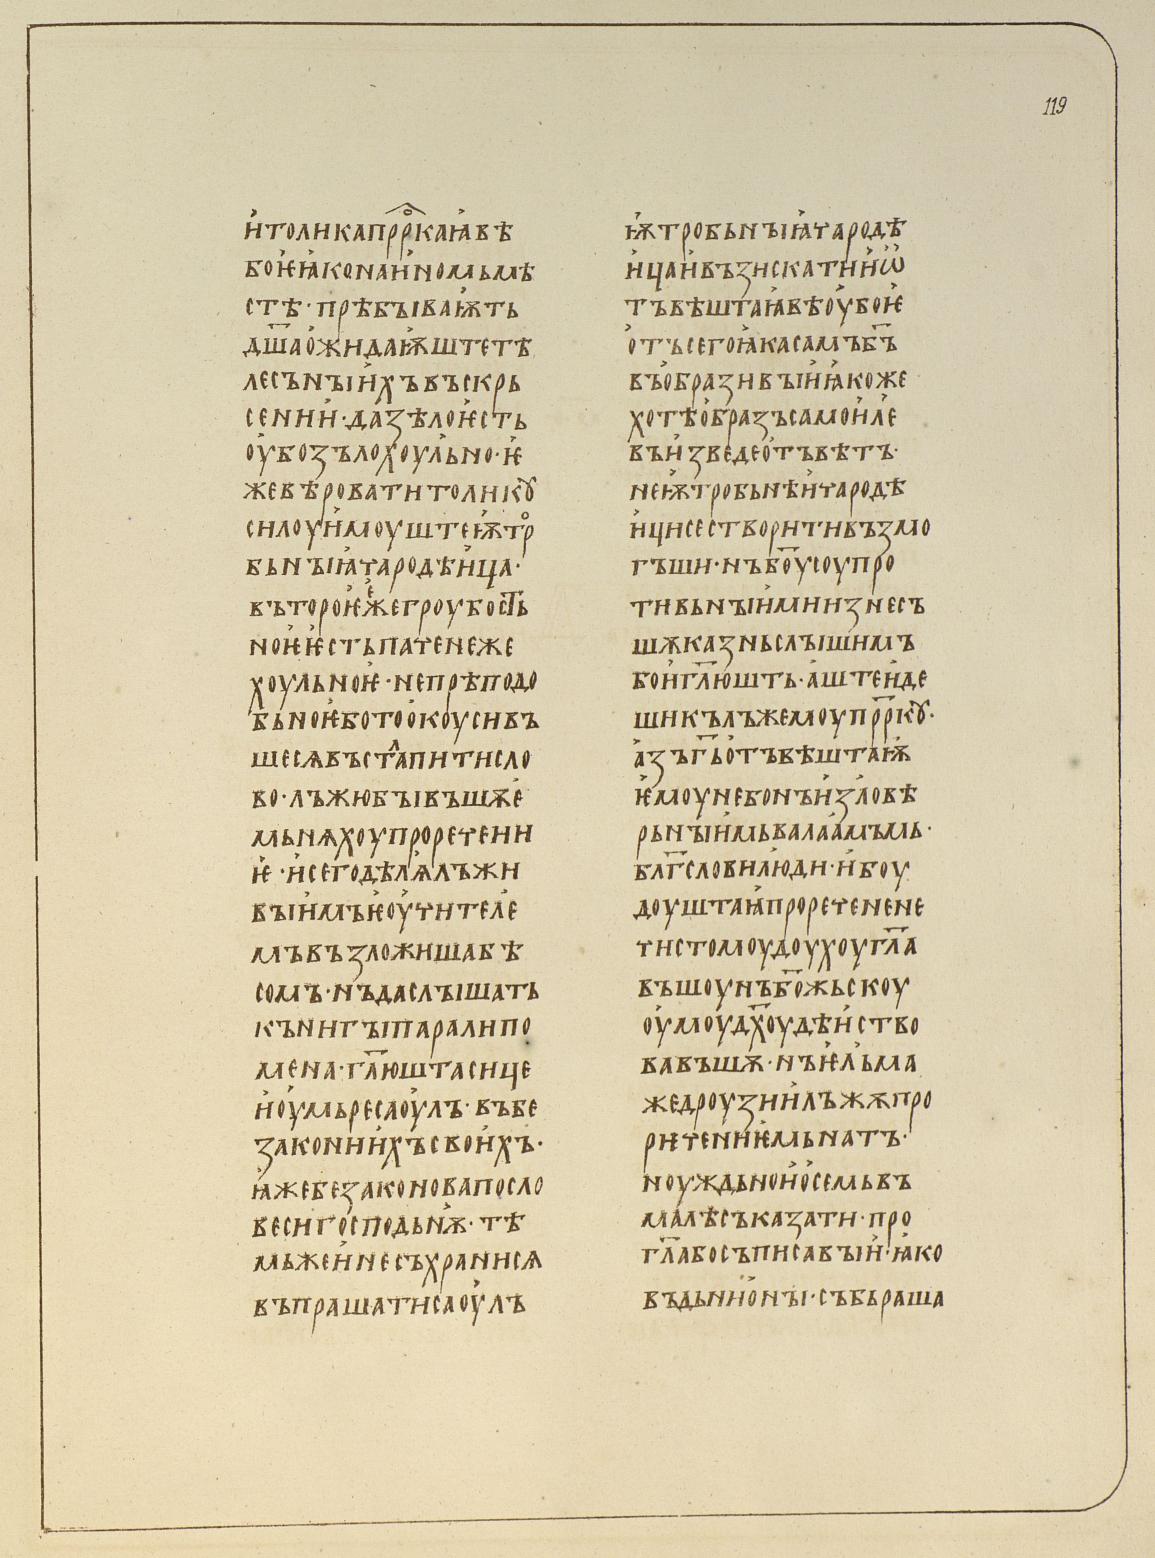 119
и҆толикапрⷪ҇ркаꙗ҆вѣ
боѥ҆ꙗ҆конаи҆номьмѣ
стѣ·прѣбꙑваѭть
дш҃ао҆жидаѭ҆штетѣ
лесъныи҆хъвъскрь
сении҆·дазѣлоѥ҆сть
оу҆бозълохоульно·ѥ҆
жевѣроватитоликꙋ
силоуи҆моуштеѭ҆трⷪ
бьныꙗ҆чародѣи҆ца·
вътороѥ҆жегроубость
ноѥ҆ѥ҆стьпаченеже
хоульноѥ҆·непрѣподо
бьноѥ҆ботоо҆коусивъ
шесѧвъстѫпитисло
во·лъжюбꙑвъшѫе҆
мьнѧхоупроречени
ѥ҆·и҆сегодѣлѧлъжи
вꙑи҆мъѥ҆оу҆чителе
мъвъзложишабѣ
сомъ·нъдаслꙑшать
кънигꙑпаралипо
мена·гл҃юштасице
и҆оу҆мьресаоу҆лъ·въбе
закониихъсвои҆хъ·
ꙗ҆жебезаконовапосло
весигосподьнѭ·тѣ
мьжеи҆несъхранисѧ
въпрашатисаоу҆лъ
ѭ҆тробьныꙗ҆чародѣ
и҆цаи҆възискатии҆ѡ҆
тъвѣштаꙗ҆вѣоу҆боѥ҆
о҆тъсегоꙗ҆касамъб҃ъ
въо҆бразивꙑи҆ꙗ҆коже
хотѣо҆бразъсамои҆ле
въи҆зведео҆тъвѣтъ·
неѭ҆тробьнѣи҆чародѣ
и҆цисестворитивъзмо
гъши·нъбо҃усоупро
тивьныи҆миизнесъ
шѫказньслꙑшимъ
бои҆гл҃юшть·а҆штеи҆де
шикълъжемоупр҃ркꙋ·
а҆зъг҃ьо҆тъвѣштаѭ҆
ѥ҆моунебонъи҆зловѣ
рьныи҆мьвалаа҆мъмь·
блг҃словилюди·и҆боу
доуштаꙗ҆проречеnене
чистомоудоухоугл҃а
въшоунъбо҃жьскоу
оу҆моу҆дх҃оудѣи҆ство
вавъшѫ·нъѥ҆льма
жедроузии҆лъжѫпро
ричениѥ҆мьнатъ·
ноуждьнои҆о҆семьвъ
малѣсъказати·про
гл҃абосъписавꙑи҆·ꙗ҆ко
въдьнио҆нꙑ·събьраша